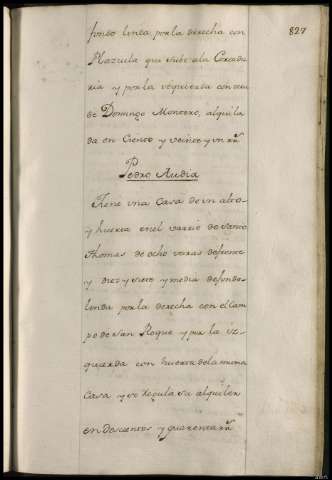 827
fondo linda por la derecha con
Plazuela que sube a la Corredu
ria y por la izquierda con casa
de Domingo Montero, alquila
da en Ciento y veinte y un rs.
Pedro Audia
Tiene una Casa de un alto
y huerta en el varrio de Santo
Thomas de ocho varas de frente
y diez y siete y media de fondo
linda por la derecha con el Cam
po de San Roque y por la iz
quierda con huerta de la misma
Casa y se regula su alquiler
en doscientos y quarenta rs.